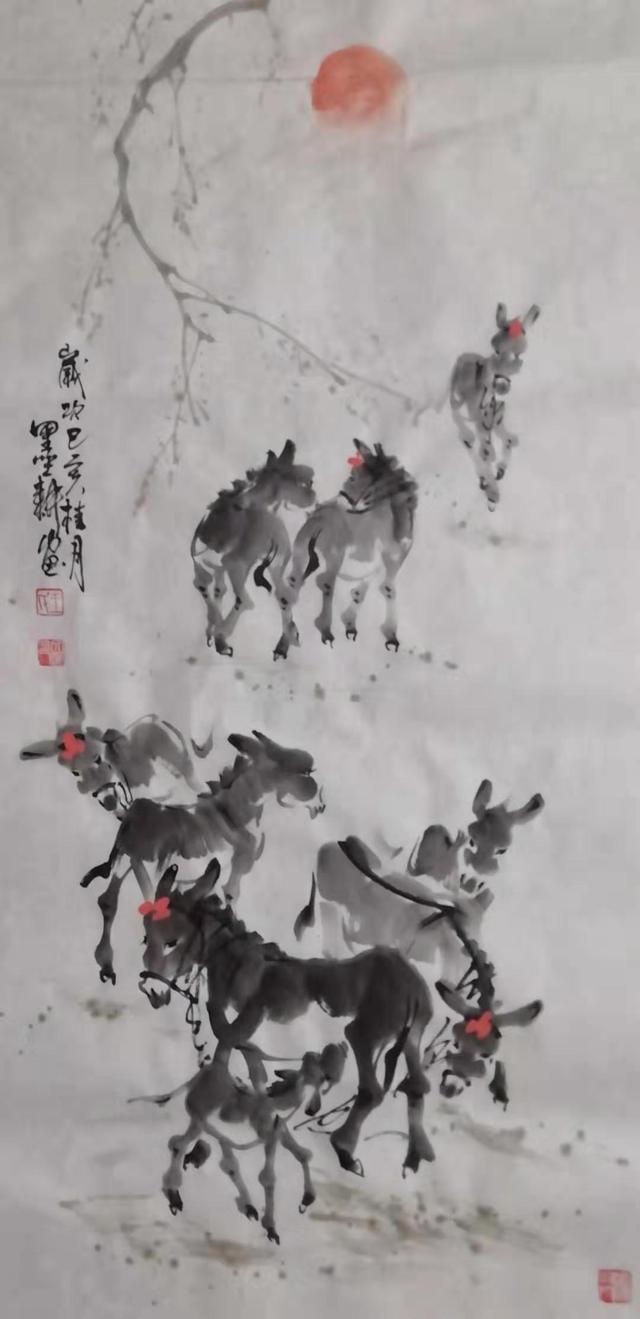 歲次己亥桂月
墨耕画